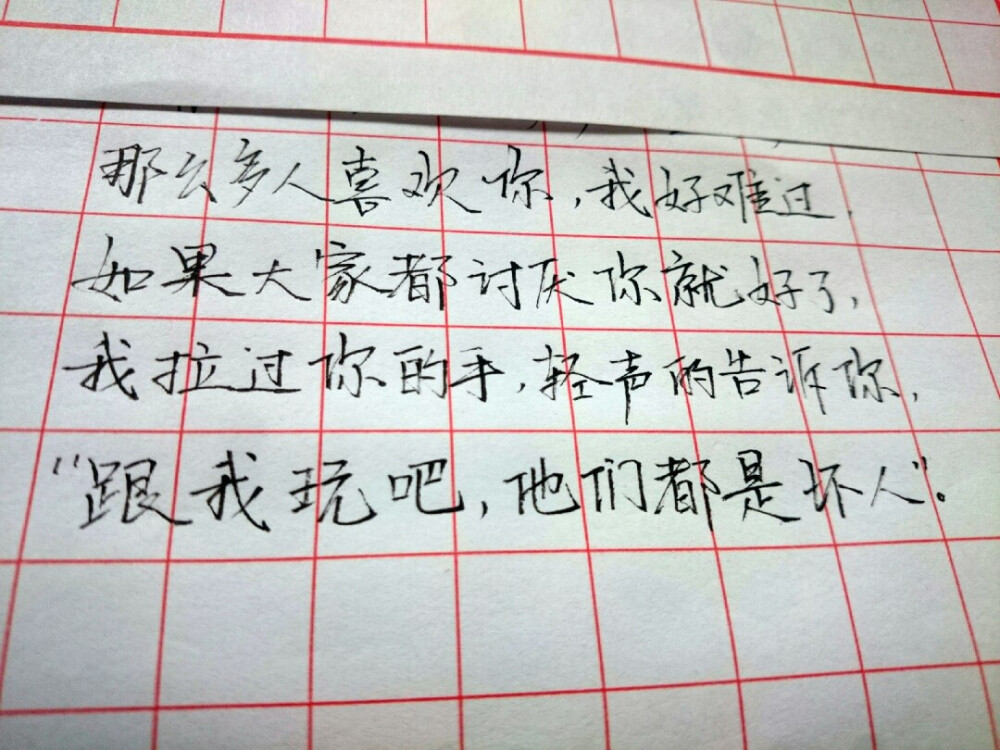 那么多人喜欢你,我好难过,
如果大家都讨厌你就好了,
我拉过你的手,轻声的告诉你,
“跟我玩吧,他们都是坏人”。